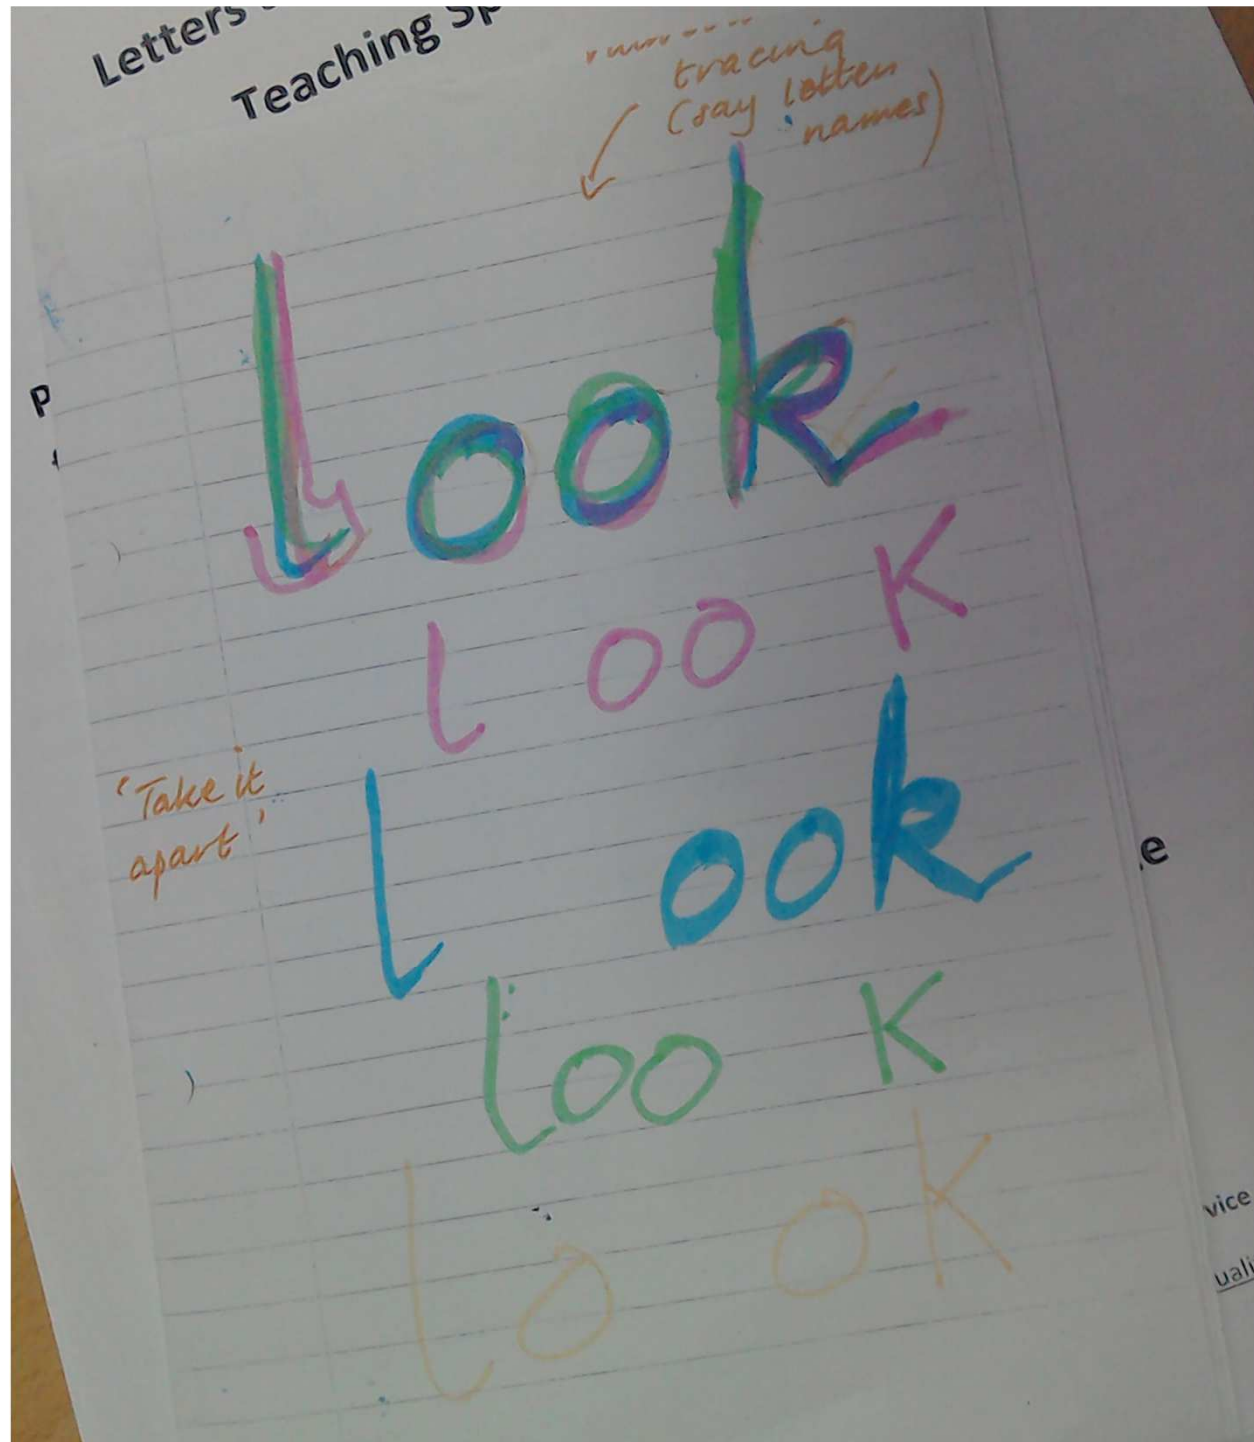 Letters
Teaching Sp
tracing
(say letter
names)
look
P
l oo K
'Take it
apart'
l ook
e
)
loo K
)
lo oK
vice
uali